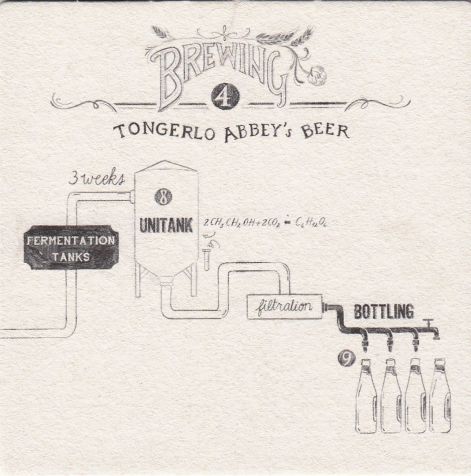 BREWING
4
TONGERLO ABBEY'S BEER
3 weeks
8
UNITANK
2CH₃CH₂OH+2CO₂ = C₆H₁₂O₆
FERMENTATION
TANKS
filtration
BOTTLING
9